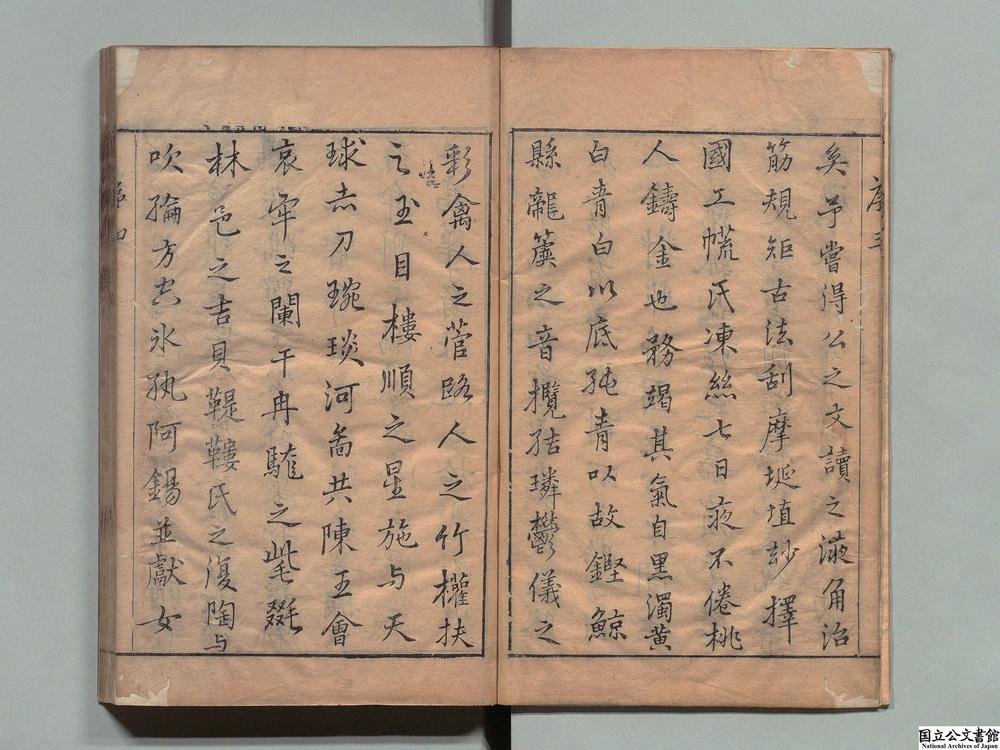 序三
矣予嘗得公之文讀之液角治
筋規矩古法刮摩埏埴玅擇
國工㡛氏凍絲七日夜不倦桃
人鑄金也務竭其氣自黑濁黄
白青白以底純青以故鏗鯨
縣龍簴之音攬結璘鬱儀之
彩禽人之菅路人之竹權扶
之玉目樓順之星施与天
球赤刀琬琰河啚共陳王會
哀牢之闌干冉駹之㲚毲
林邑之吉貝鞮鞻氏之復陶与
吹綸方空氷紈阿錫並獻女
序四
国立公文書館
National Archives of Japan